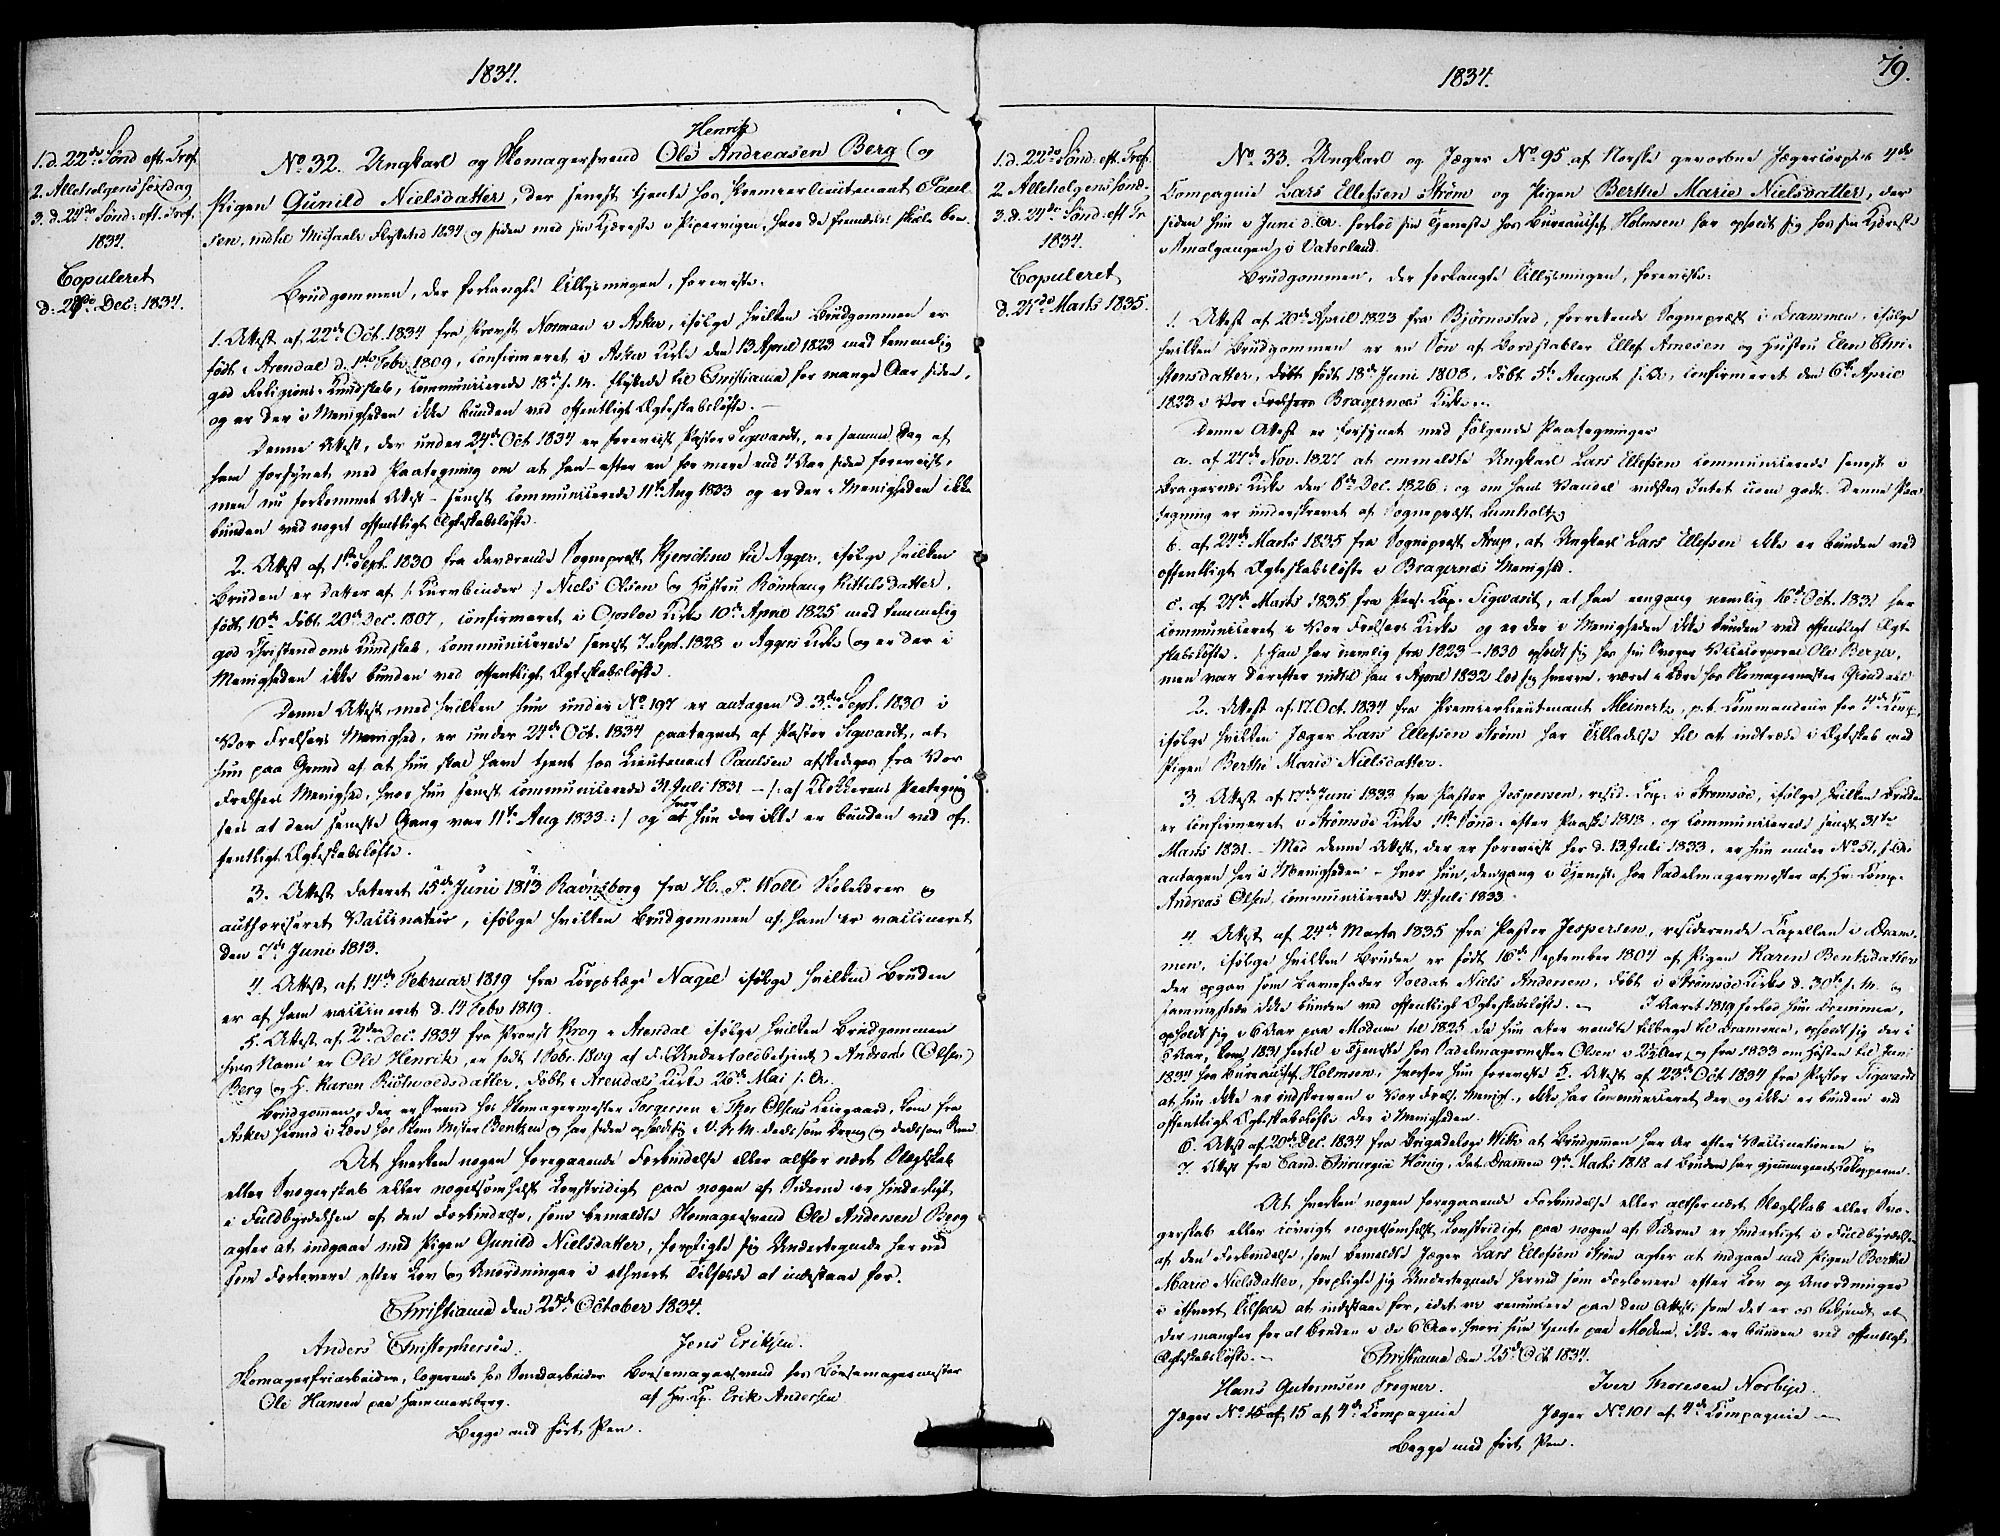 1834.
1. d. 22de Sønd. eft. Tref.
2. Allehelgens Søndag
3. d. 24de Sønd: eft. Tref.
1834.
Copuleret
d: 28de Dec: 1834.
Henrik
No 32. Ungkarl og Skomagersvend Ole Andreasen Berg og
Pigen Gunild Nielsdatter, der senest tjente hos Premierlieutenant Paul-
sen, indtil Michaeli Flyttetid 1834 og siden med sin Kjæreste i Pipervigen, hvor de fremdeles skulle boe
Brudgommen, der forlangte Lysningen, foreviste:
1. Attest af 22de Oct. 1834 fra Provst Norman i Asker, ifølge hvilken Brudgommen er
født i Arendal d. 1ste Febr. 1809, confirmeret i Asker Kirke den 13 April 1823 med temmelig
god Religions-Kundskab, communicerede 18de s. M. flyttede til Christiania for mange Aar siden,
og er der i Menigheden ikke bunden ved offentligt Ægteskabsløfte.
Denne Attest, der under 24de Oct 1834 er foreviist Pastor Sigwardt, er samme Dag af
ham forsynet med Paategning om at han efter en for mere end 4 Aar siden foreviist,
men nu forkommet Attest senest communicerede 11te Aug 1833 og er der i Menigheden ikke
bunden ved noget offentligt Ægteskabsløfte.
2. Attest af 1ste Sept. 1830 fra daværende Sognepræst Kjerschow til Agger, ifølge hvilken
Bruden er Datter af /: Kurvbinder :/ Niels Olsen og Hustru Rønnaug Kittilsdatter,
født 10de døbt 20de Dec. 1807, confirmeret i Opsloe Kirke 10de April 1825 med temmelig
god Christendoms Kundskab, communicerede senest 7. Sept. 1828 i Aggers Kirke og er der i
Menigheden ikke bunden ved offentligt Ægteskabsløfte.
Denne Attest, med hvilken hun under No 197 er antagen d. 3die Sept. 1830 i
Vor Frelsers Menighed, er under 24de Oct. 1834 paategnet af Pastor Sigwardt, at
hun paa Grund af at hun skal have tjent hos Lieutenant Paulsen afskediges fra Vor
Frelsers Menighed, hvor hun senest communicerede 31 Juli 1831 - /: af Klokkerens Paategning
sees at den seneste Gang var 11te Aug 1833 :/ og at hun der ikke er bunden ved of-
fentligt Ægteskabsløfte.
3. Attest dateret 15de Juni 1813 Ravnsborg fra H. P. Woll Skolelærer og
authoriseret Vaccinateur, ifølge hvilken Brudgommen af ham er vaccineret
den 7de Juni 1813.
4. Attest af 14de Februar 1819 fra Corpslæge Nagel ifølge hvilken Bruden
er af ham vaccineret d. 14 Febr 1819.
5. Attest af 2den Dec. 1834 fra Provst Krog i Arendal ifølge hvilken Brudgommen
hvis Navn er Ole Henrik, er født 1 Febr. 1809 af F. (Undertoldbetjent) Andreas (Olsen)
Berg og H. Karen Reistwoldsdatter, døbt i Arendals Kirke 26de Mai s. A.
Brudgommen, der er Svend hos Skomagermester Torgersen i Thor Olsens Leiegaard, kom fra
Asker herind i Lære hos Skom. Mester Bentzen og har siden opholdt sig i V. F. M. deels som Dreng og deels som Svend
At hverken nogen foregaaende Forbindelse eller altfor nært Slægtskab
eller Svogerskab eller nogetsomhelst Lovstridigt paa nogen af Siderne er hinderligt
i Fuldbyrdelsen af den Forbindelse, som bemeldte Skomagersvend Ole Andersen Berg
agter at indgaae med Pigen Gunild Nielsdatter, forpligte sig Undertegnede herved
som Forlovere efter Lov og Anordninger i ethvert Tilfælde at indestaae for.
Christiania den 25de October 1834.
Anders Christophersen. Jens Eriksen.
Skomagerfriarbeider, logerende hos Svendarbeider Børsemagersvend hos Børsemagermester
Ole Hansen paa Hammersborg. af Hr. Cp. Erik Andersen
Begge med ført Pen.
1834.
79.
1. d. 22de Sønd: eft. Tref.
2. Allehelgens Sønd.
3. d. 24de Sønd: eft Tr.
1834.
Copuleret
d. 24de Marts 1835.
No. 33. Ungkarl og Jæger No 95 af Norske gevorbne Jægercorpses 4de
Compagnie Lars Ellefsen Strøm og Pigen Berthe Marie Nielsdatter, der
siden hun i Juni d. A. forlod sin Tjeneste hos Bureauchef Holmsen har opholdt sig hos sin Kjæreste
i Smalgangen i Vaterland.
Brudgommen, der forlangte Lysningen, foreviste:
1. Attest af 20de April 1823 fra Bjørnestad, forrettende Sognepræst i Drammen, ifølge
hvilken Brudgommen er en Søn af Bordstabler Ellef Arnesen og Hustru Elen Chri-
stensdatter, født 18de Juni 1808, døbt 5te August s. A, confirmeret den 6te April
1823 i Vor Frelsers Bragernæs Kirke.
Denne Attest er forsynet med følgende Paategninger
a. af 27de Nov. 1827 at ommeldte Ungkarl Lars Ellefsen communicerede senest i
Bragernæs Kirke den 8de Dec. 1826; og om hans Vandel vidstes Intet uden godt. Denne Paa-
tegning er underskrevet af Sognepræst Lumholtz
b. af 24de Marts 1835 fra Sognepræst Arup, at Ungkarl Lars Ellefsen ikke er bunden ved
offentligt Ægteskabsløfte i Bragernæs Menighed.
c. af 27de Marts 1835 fra Pers. Cap. Sigwardt, at han engang nemlig 16de Oct. 1831 har
communiceret i Vor Frelsers Kirke og er der i Menigheden ikke bunden ved offentligt Ægte-
skabsløfte. /: Han har nemlig fra 1823-1830 opholdt sig hos sin Svoger Vicecorporal Ole Berger,
men var derefter indtil han i April 1832 lod sig hverve, været i Lære hos Skomagermester Grøndahl
2. Attest af 17. Oct. 1834 fra Premierlieutenant Meinertz, p. t. Commandeur for 4de Comp.
ifølge hvilken Jæger Lars Ellefsen Strøm har Tilladelse til at indtræde i Ægteskab med
Pigen Berthe Marie Nielsdatter.
3. Attest af 17de Juni 1833 fra Pastor Jespersen, resid. Cap. i Strømsøe, ifølge hvilken Bruden
er confirmeret i Strømsøe Kirke 1ste Sønd. efter Paaske 1818, og communicerede senest 31te
Marts 1831. - Med denne Attest, der er foreviist her d. 13 Juli 1833, er hun under No 51, s. A.
antagen her i Menigheden - hvor hun, dengang i Tjeneste hos Sadelmagermester af Hr. Comp.
Andreas Olsen, communicerede 14 Juli 1833.
4. Attest af 24de Marts 1835 fra Pastor Jespersen, residerende Capellan i Dram-
men, ifølge hvilken Bruden er født 16de September 1804 af Pigen Karen Bentsdatter
der opgav som Barnefader Soldat Niels Andersen, døbt i Strømsøe Kirke d. 30te s. M. og
sammesteds ikke bunden ved offentligt Ægteskabsløfte. - I Aaret 1819 forlod hun Drammen,
opholdt sig i 6 Aar paa Modum til 1825 da hun atter vendte tilbage til Drammen, opholdt sig der i
6 Aar, kom 1831 hertil i Tjeneste hos Sadelmagermester Olsen og fra 1833 om Høsten til Juni
1834 hos Bureauchef Holmsen, hvorfor hun foreviste 5. Attest af 23de Oct. 1834 fra Pastor Sigwardt
at hun ikke er indskreven i Vor Frels. Menigh., ikke har communiceret der og ikke er bunden ved
offentligt Ægteskabsløfte der i Menigheden.
6. Attest af 20de Dec. 1834 fra Brigadelæge With at Brudgommen har Ar efter Vaccinationen og
7. Attest fra Cand. Chirurgiæ König, dat. Drammen 9de Marts 1818 at Bruden har gjennemgaaet Kokopperne.
At hverken nogen foregaaende Forbindelse eller altfor nært Slægtskab eller Svo-
gerskab eller iøvrigt nogetsomhelst Lovstridigt paa nogen af Siderne er hinderligt i Fuldbyrdelsen
af den Forbindelse, som bemeldte Jæger Lars Ellefsen Strøm agter at indgaae med Pigen Berthe
Marie Nielsdatter, forpligte sig Undertegnede herved som Forlovere efter Lov og Anordninger
i ethvert Tilfælde at indestaae for, idet vi renuncere paa den Attest som det er os bekjendt at
der mangler for at Bruden i de 6 Aar, hvori hun tjente paa Modum, ikke er bunden ved offentligt
Ægteskabsløfte. - Christiania den 25de Oct 1834.
Hans Gutormsen Fregner. Iver Thoresen Norbye.
Jæger No 15 af 15 af 4de Compagnie Jæger No 101 af 4de Compagnie
Begge med ført Pen.